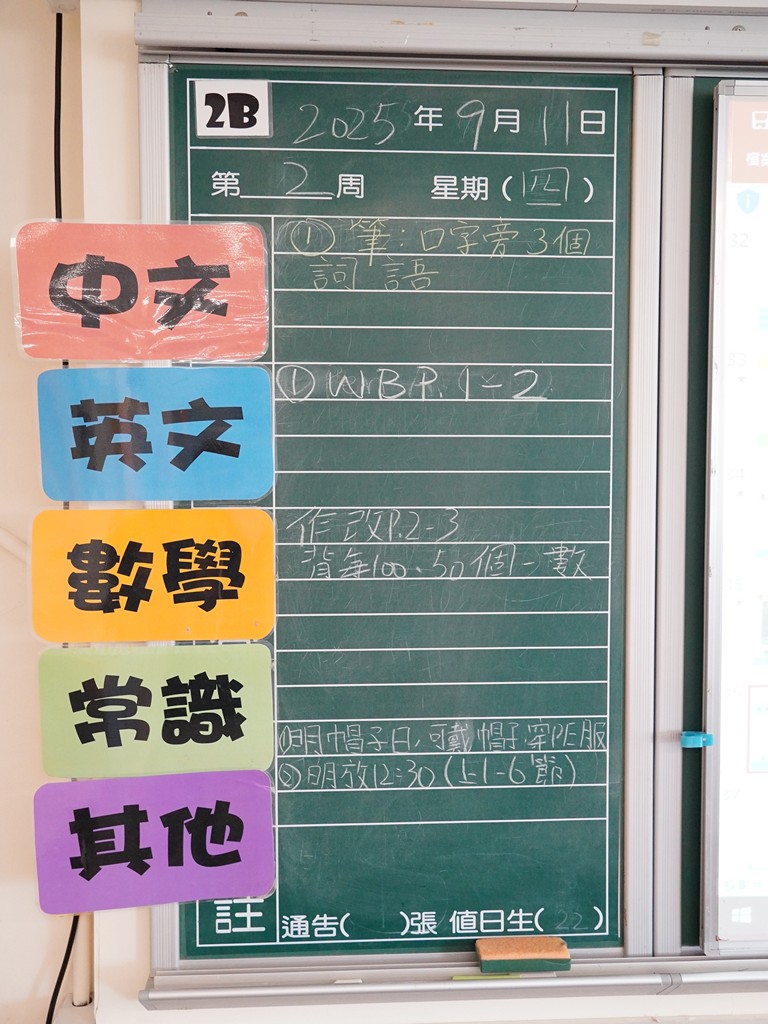 2B 2025年9月11日
第2周 星期(四)
中文
①筆:口字旁3個
詞語
英文
①WBP.1-2
數學
作改P.2-3
背每100、50個一數
常識
①明帽子日,可戴帽子穿PE服
②明放12:30(上1-6節)
其他
註
通告( )張 值日生(22)
32
33
34